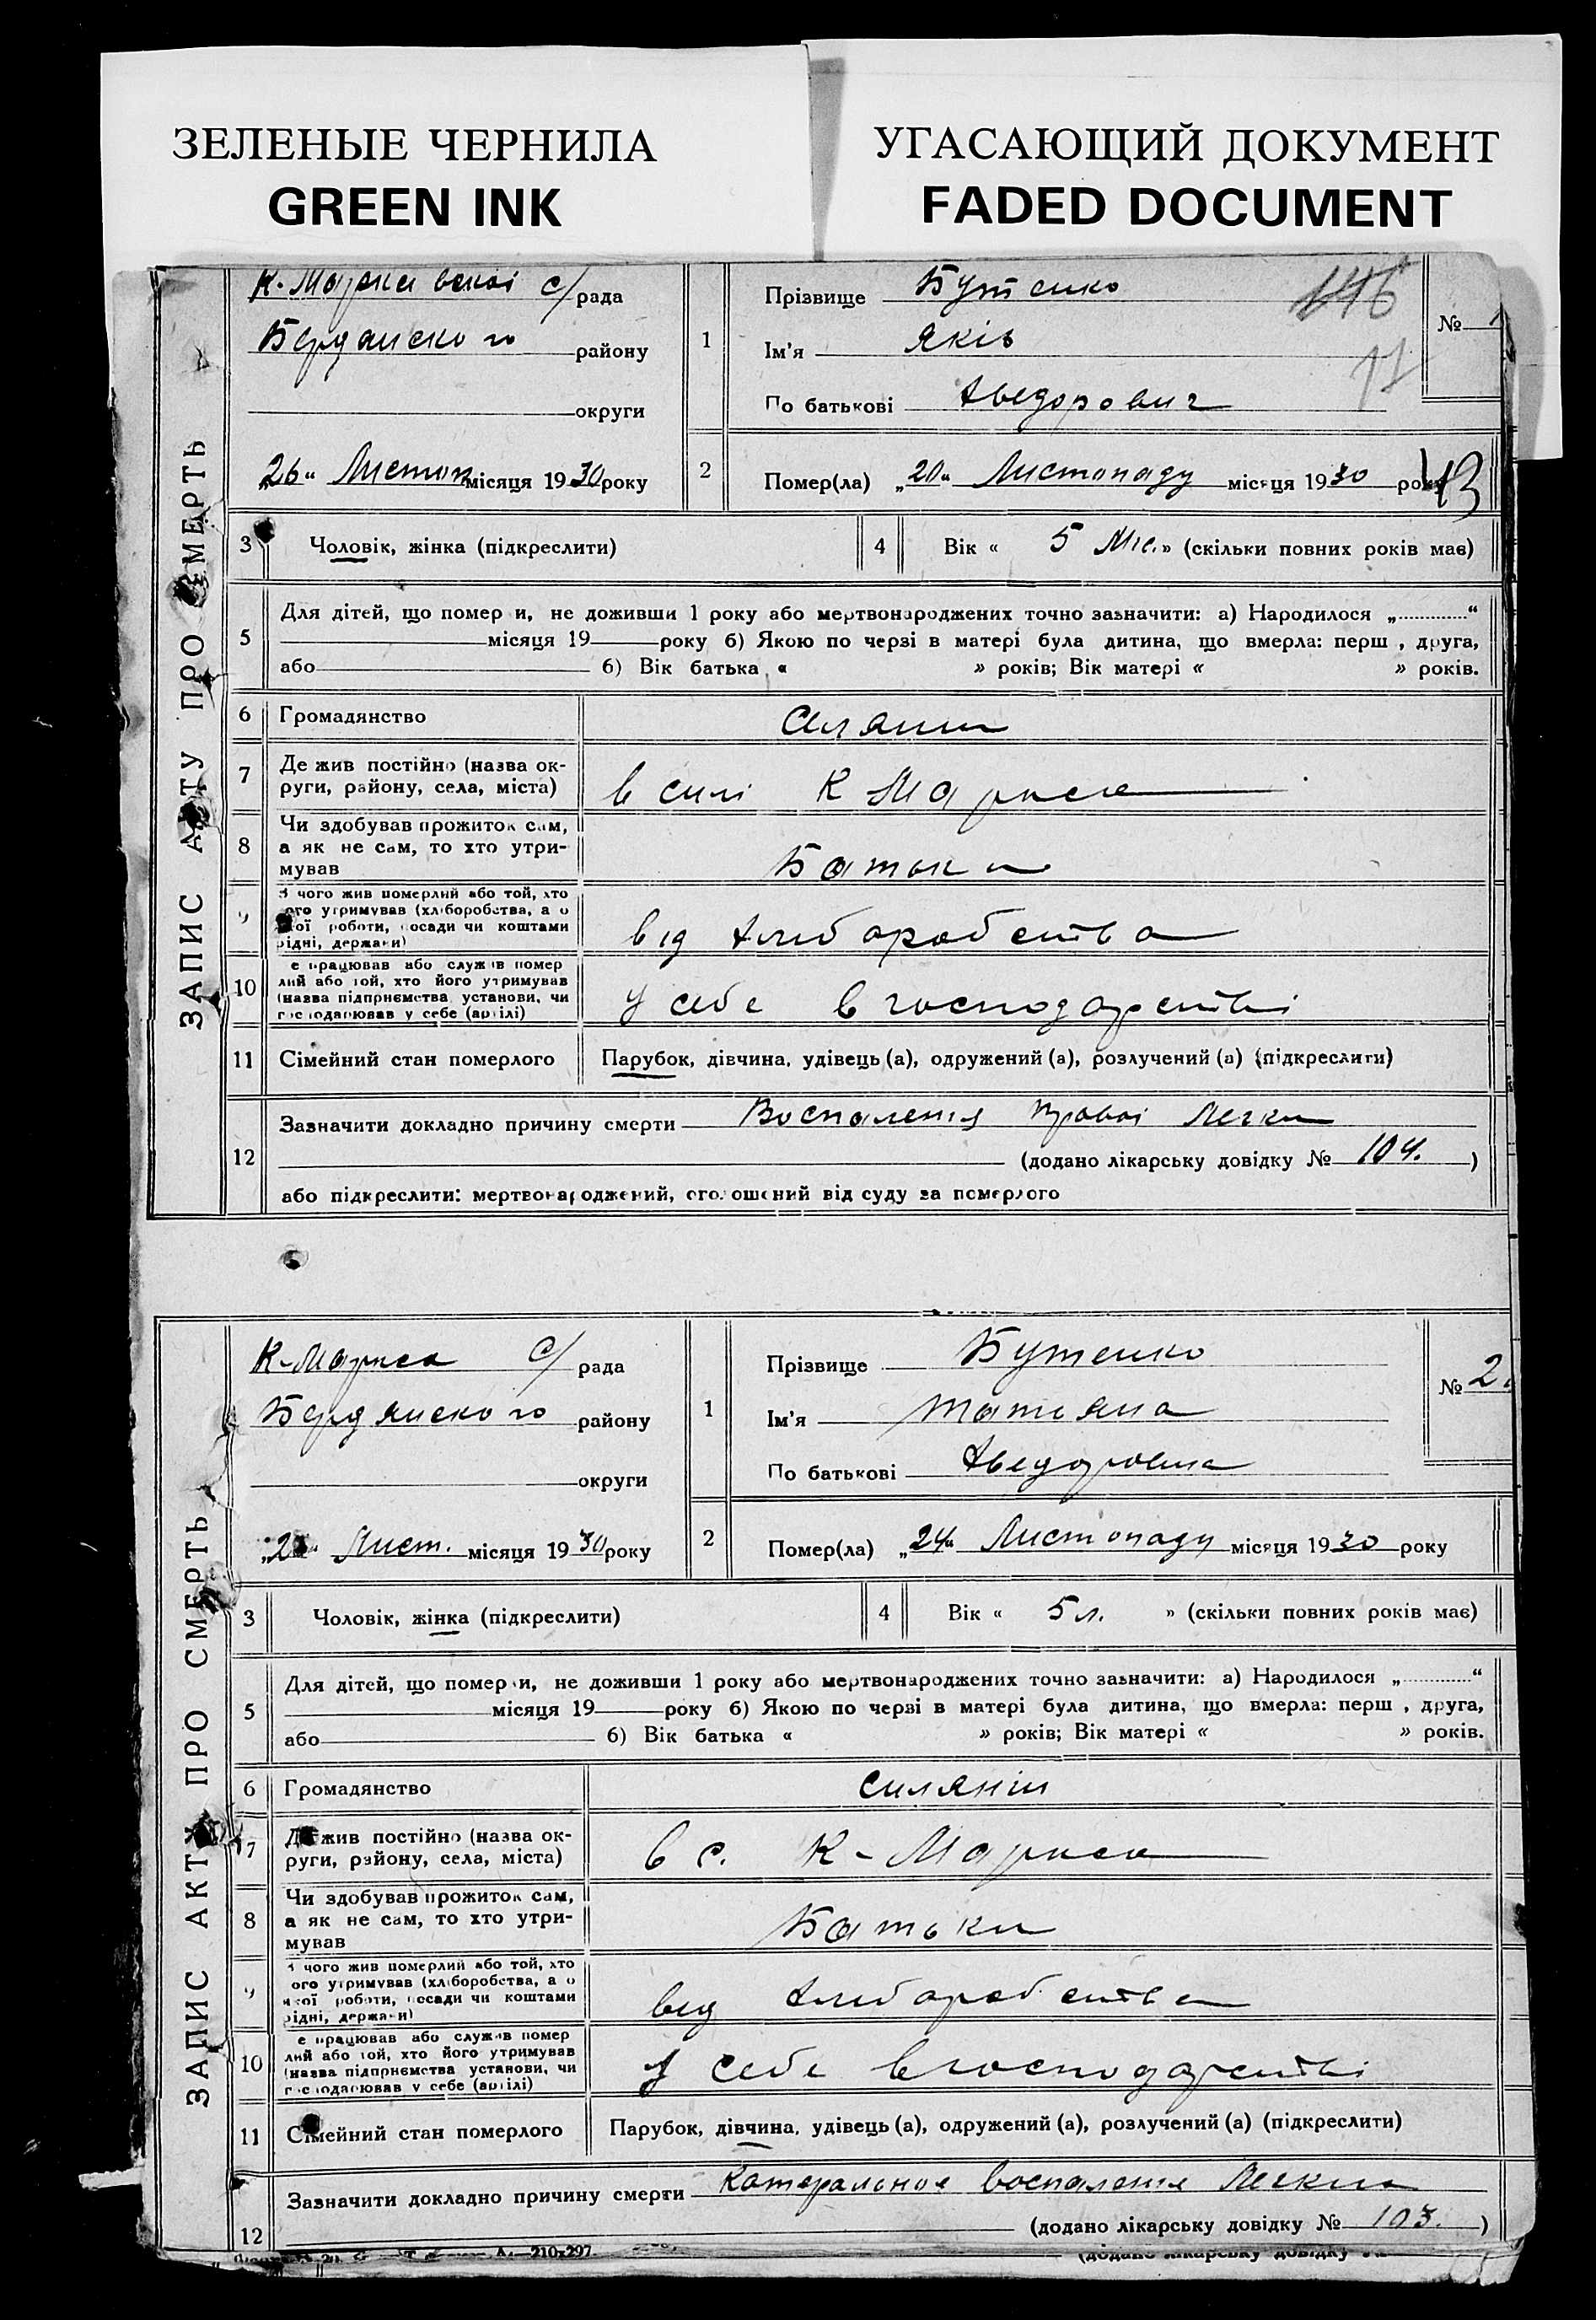 ЗЕЛЕНЫЕ ЧЕРНИЛА
GREEN INK
УГАСАЮЩИЙ ДОКУМЕНТ
FADED DOCUMENT
ЗАПИС АКТУ ПРО СМЕРТЬ
К. Марксівської с/рада
Бердянского району
округи
„26“ Листоп місяця 1930 року
1
Прізвище Бутенко
Ім'я Яків
По батькові Хведорович
146
11
№
2
Помер(ла) „20“ Листопаду місяця 1930 року
13
3
Чоловік, жінка (підкреслити)
4
Вік « 5 Міс. » (скільки повних років має)
5
Для дітей, що померли, не доживши 1 року або мертвонароджених точно зазначити: а) Народилося „ “
місяця 19 року б) Якою по черзі в матері була дитина, що вмерла: перш , друга,
або б) Вік батька « » років; Вік матері « » років.
6
Громадянство
Селянин
7
Де жив постійно (назва ок-
руги, району, села, міста)
в силі К Маркса
8
Чи здобував прожиток сам,
а як не сам, то хто утри-
мував
Батьки
9
З чого жив померлий або той, хто
його утримував (хліборобства, а о
якої роботи, посади чи коштами
рідні, держави)
від хлиборобства
10
е працював або служив помер
лий або той, хто його утримував
(назва підприємства, установи, чи
господарював у себе (артілі)
у себе в господарстві
11
Сімейний стан померлого
Парубок, дівчина, удівець (а), одружений (а), розлучений (а) (підкреслити)
12
Зазначити докладно причину смерти Воспаления правої Легки
(додано лікарську довідку № 104. )
або підкреслити: мертвонароджений, оголошений від суду за померлого
ЗАПИС АКТУ ПРО СМЕРТЬ
К-Маркса с/рада
Бердянского району
округи
Лист. місяця 1930 року
1
Прізвище Бутенко
Ім'я Татьяна
По батькові Хведоровна
№ 2.
2
Помер(ла) „24“ Листопаду місяця 1930 року
3
Чоловік, жінка (підкреслити)
4
Вік « 5 л. » (скільки повних років має)
5
Для дітей, що померли, не доживши 1 року або мертвонароджених точно зазначити: а) Народилося „ “
місяця 19 року б) Якою по черзі в матері була дитина, що вмерла: перш , друга,
або б) Вік батька « » років; Вік матері « » років.
6
Громадянство
силянін
7
Де жив постійно (назва ок-
руги, району, села, міста)
в с. К-Маркса
8
Чи здобував прожиток сам,
а як не сам, то хто утри-
мував
Батьки
9
З чого жив померлий або той, хто
його утримував (хліборобства, а о
якої роботи, посади чи коштами
рідні, держави)
вид хлиборобства
10
е працював або служив помер
лий або той, хто його утримував
(назва підприємства, установи, чи
господарював у себе (артілі)
у себе в господарстві
11
Сімейний стан померлого
Парубок, дівчина, удівець (а), одружений (а), розлучений (а) (підкреслити)
12
Зазначити докладно причину смерти Катеральное воспаления Легких
(додано лікарську довідку № 103. )
210x297.
(додано лікарську довідку